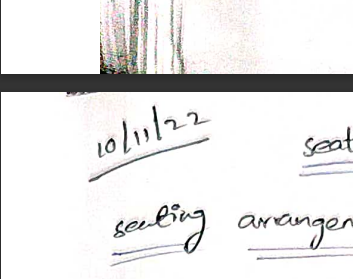 10/11/22
seat
seating arrangen